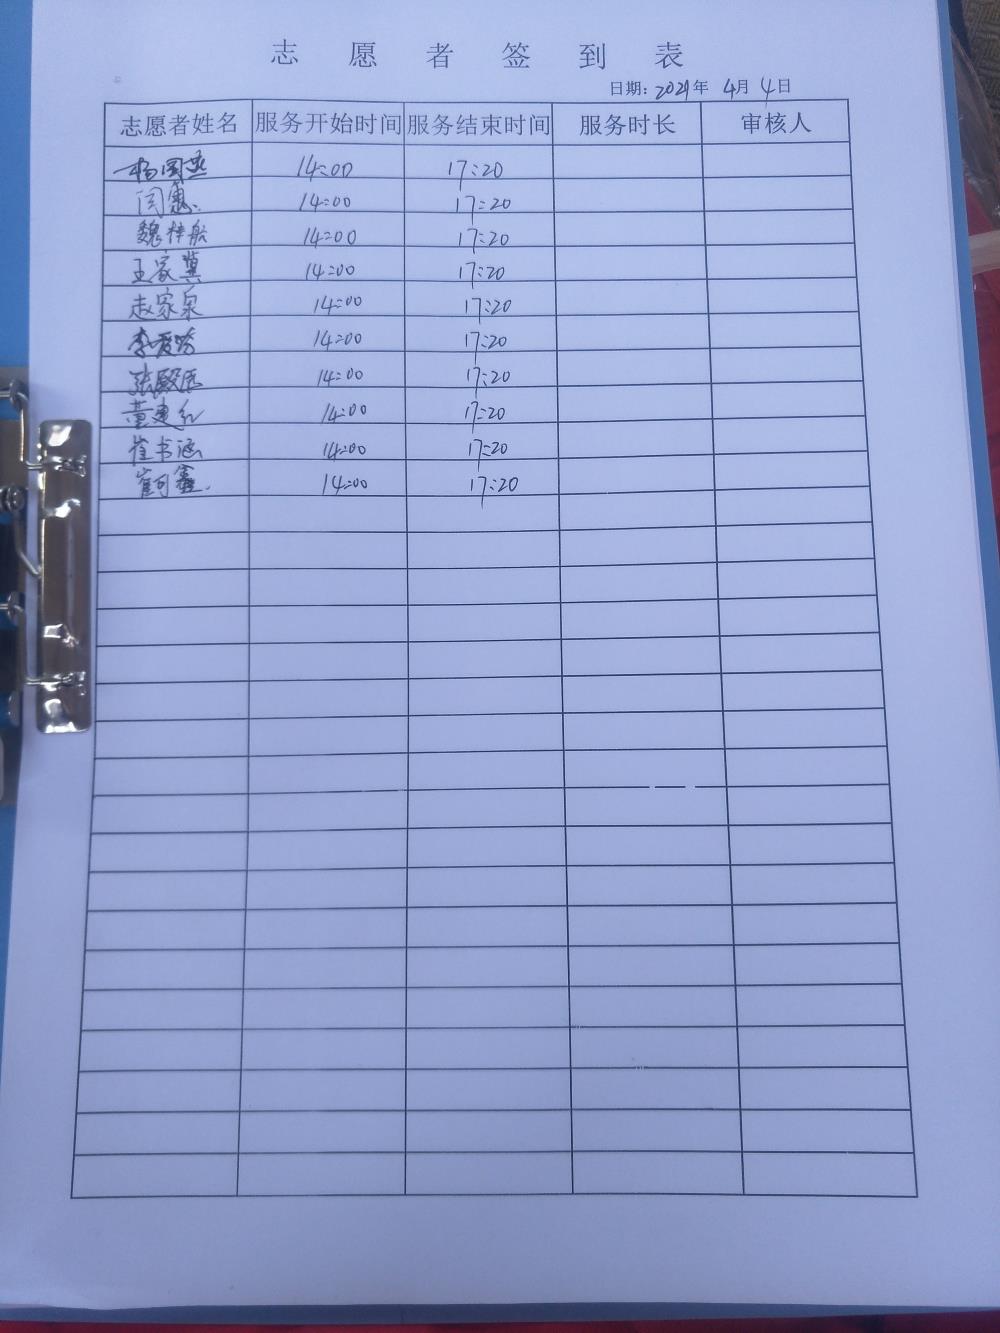 志愿者签到表
日期：2021年 4月 4日
志愿者姓名 服务开始时间 服务结束时间 服务时长 审核人
杨国燕 14:00 17:20
闫惠 14:00 17:20
魏梓船 14:00 17:20
王家冀 14:00 17:20
赵家泉 14:00 17:20
李爱 14:00 17:20
张殿臣 14:00 17:20
董建红 14:00 17:20
崔书涵 14:00 17:20
崔可鑫 14:00 17:20